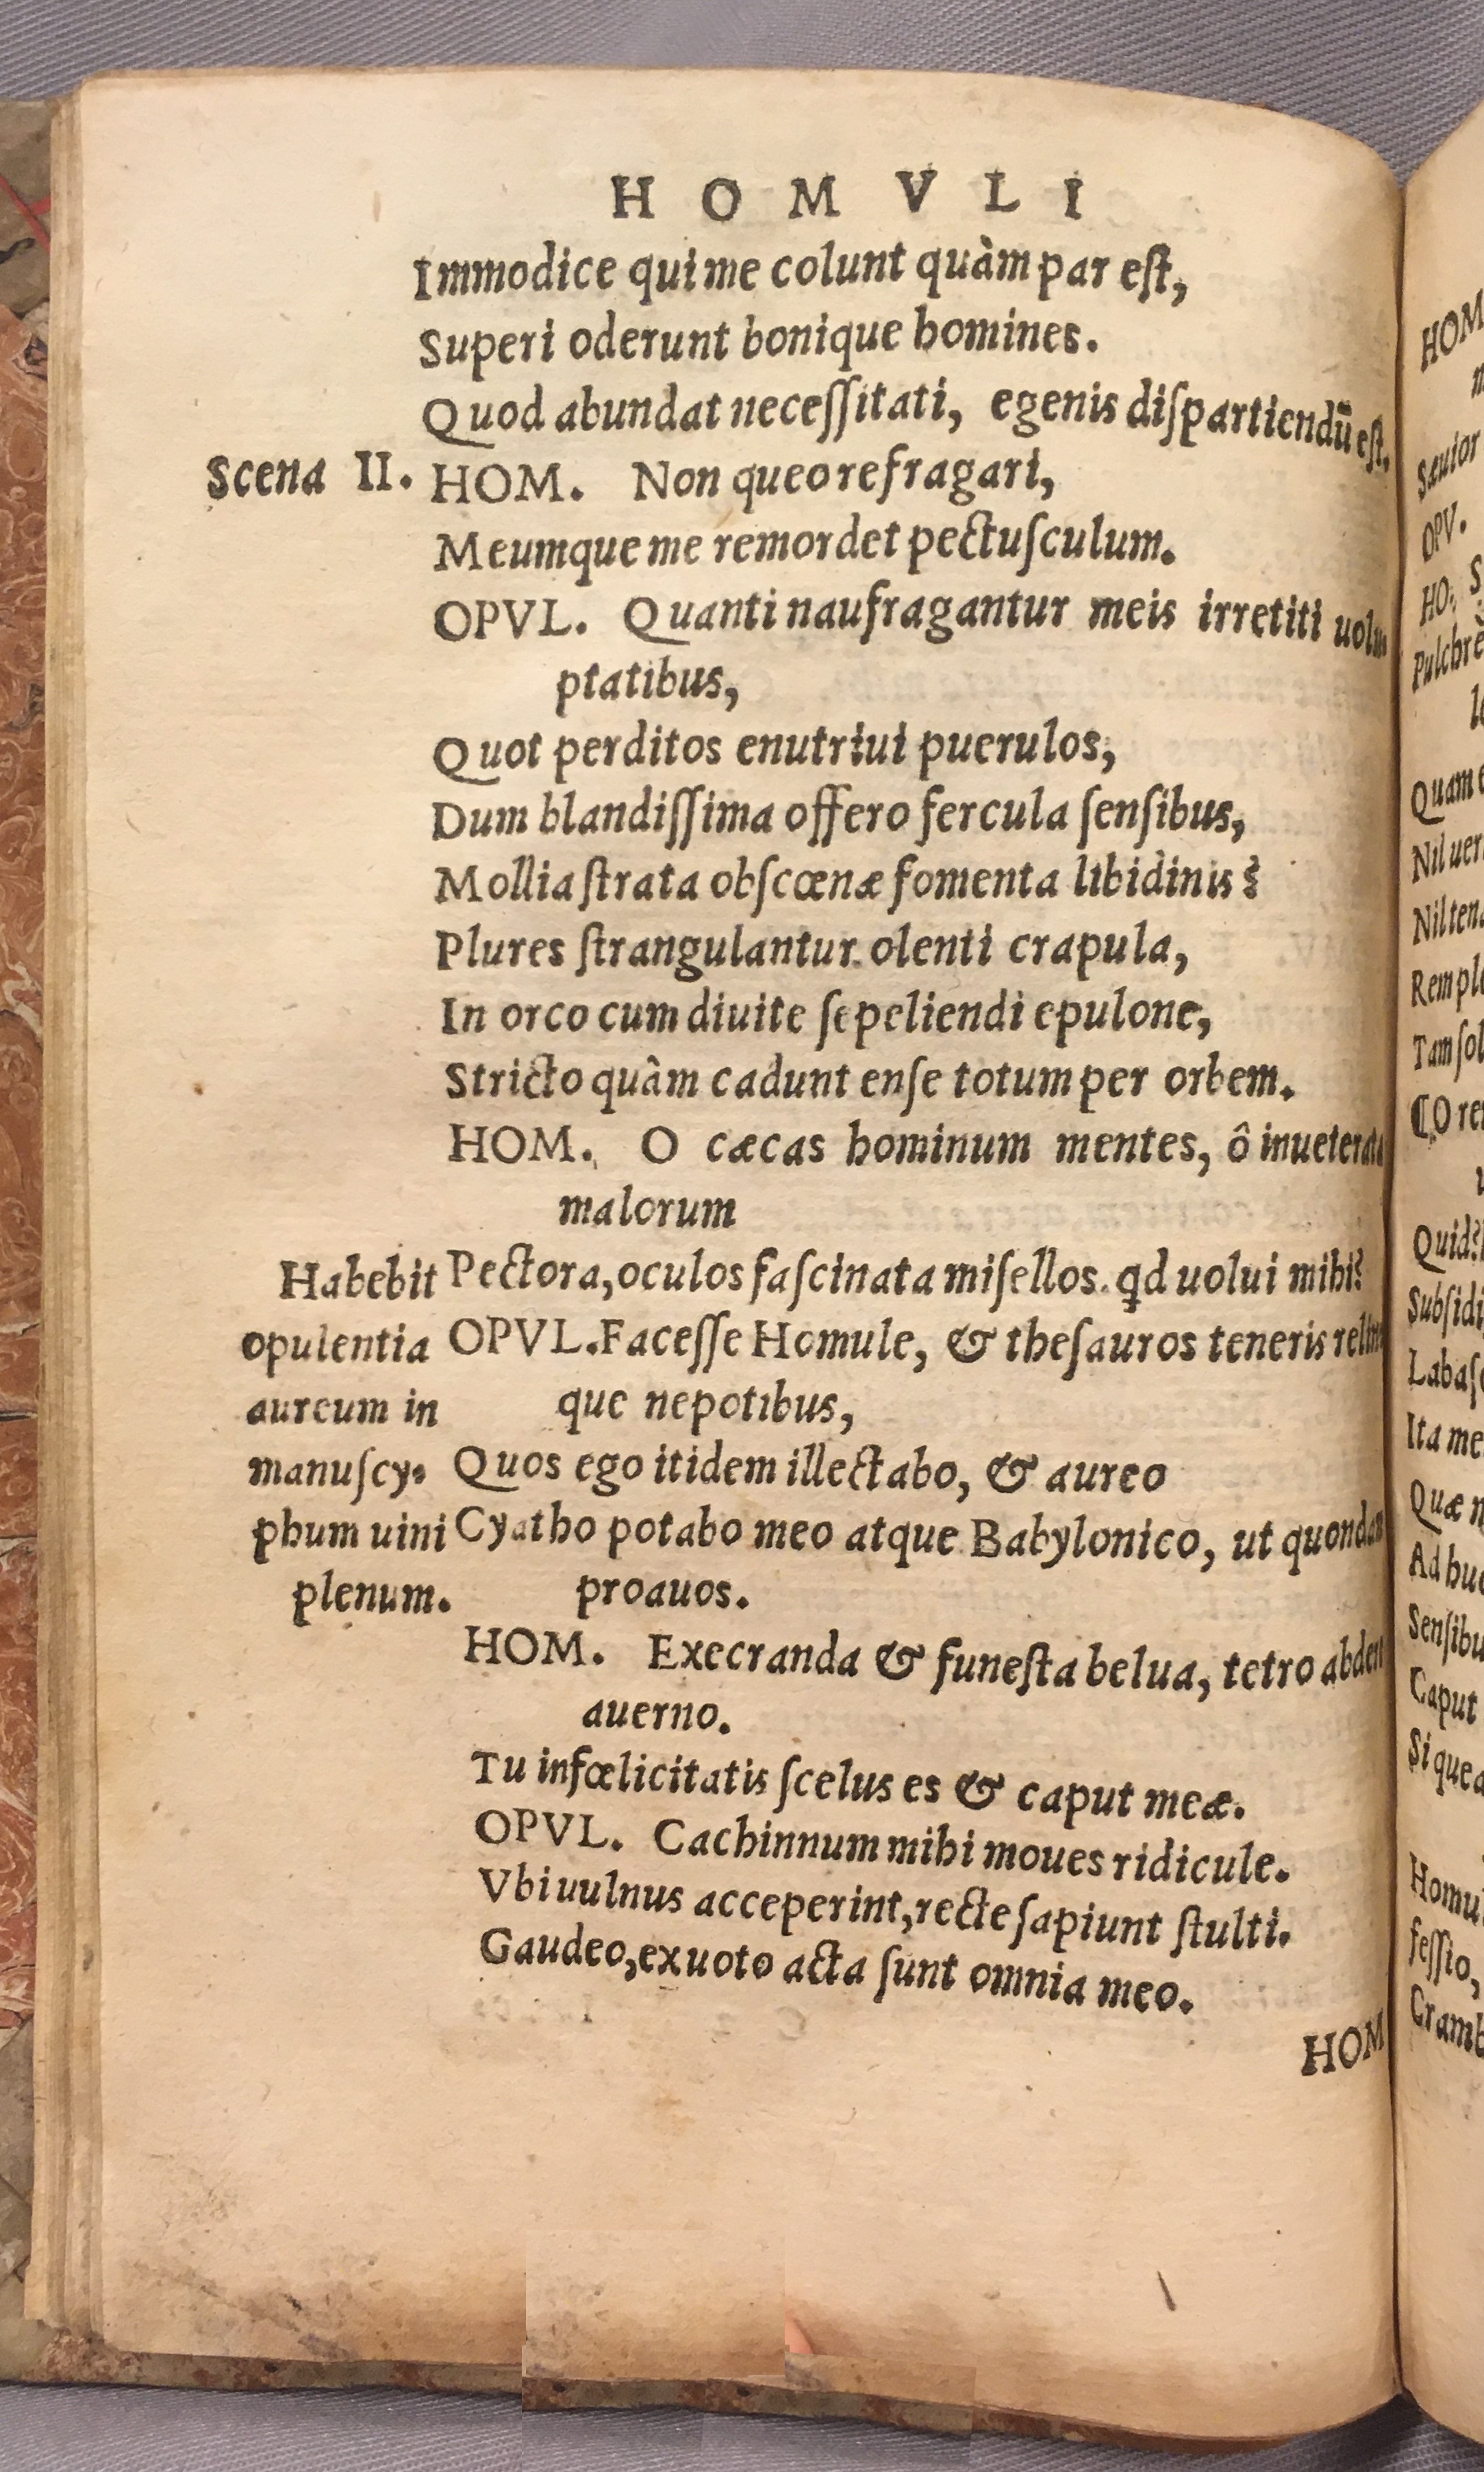 HOMVLI
Immodice qui me colunt quàm par eſt,
Superi oderunt bonique homines.
Quod abundat neceſſitati, egenis diſpartiendū eſt.
Scena II. HOM. Non queo refragari,
Meumque me remordet pectuſculum.
OPVL. Quanti naufragantur meis irretiti uolu
ptatibus,
Quot perditos enutriui puerulos,
Dum blandiſſima offero fercula ſenſibus,
Mollia ſtrata obſcœnæ fomenta libidinis?
Plures ſtrangulantur olenti crapula,
In orco cum diuite ſepeliendi epulone,
Stricto quàm cadunt enſe totum per orbem.
HOM. O cæcas hominum mentes, ô
malorum
Pectora, oculos faſcinata miſellos. qd uolui mihi?
OPVL. Faceſſe Homule, & theſauros teneris
que nepotibus,
Quos ego itidem illectabo, & aureo
Cyatho potabo meo atque Babylonico, ut
proauos.
Habebit
opulentia
aureum in
manu ſcy-
phum uini
plenum.
HOM. Execranda & funeſta belua, tetro
auerno.
Tu infœlicitatis ſcelus es & caput meæ.
OPVL. Cachinnum mihi moues ridicule.
Vbi uulnus acceperint, recte ſapiunt ſtulti.
Gaudeo, ex uoto acta ſunt omnia meo.
HOM
HOM
Sæuior
OPV.
HO.
Pulchrè
Quam
Nil
Nil
Rem
Tam
Quid?
Ita me
Quæ
Ad
Caput